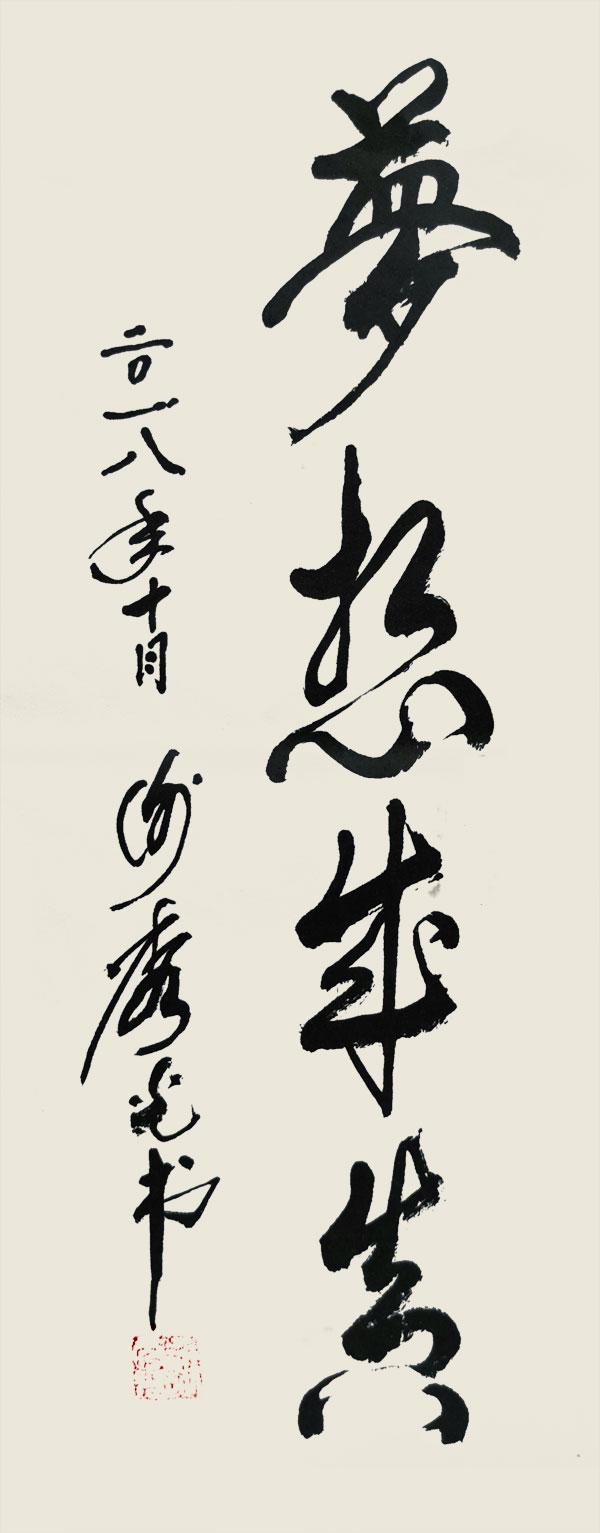 夢想成真
二〇一八年十月 书